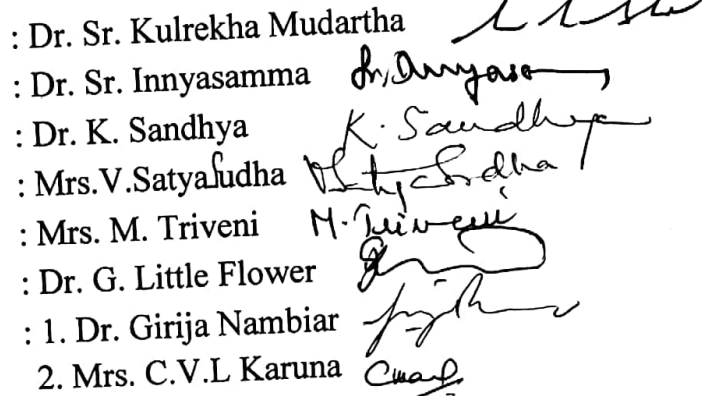 : Dr. Sr. Kulrekha Mudartha
: Dr. Sr. Innyasamma
: Dr. K. Sandhya K. Sandhya
: Mrs.V.Satyasudha
: Mrs. M. Triveni M. Triveni
: Dr. G. Little Flower
: 1. Dr. Girija Nambiar
2. Mrs. C.V.L Karuna